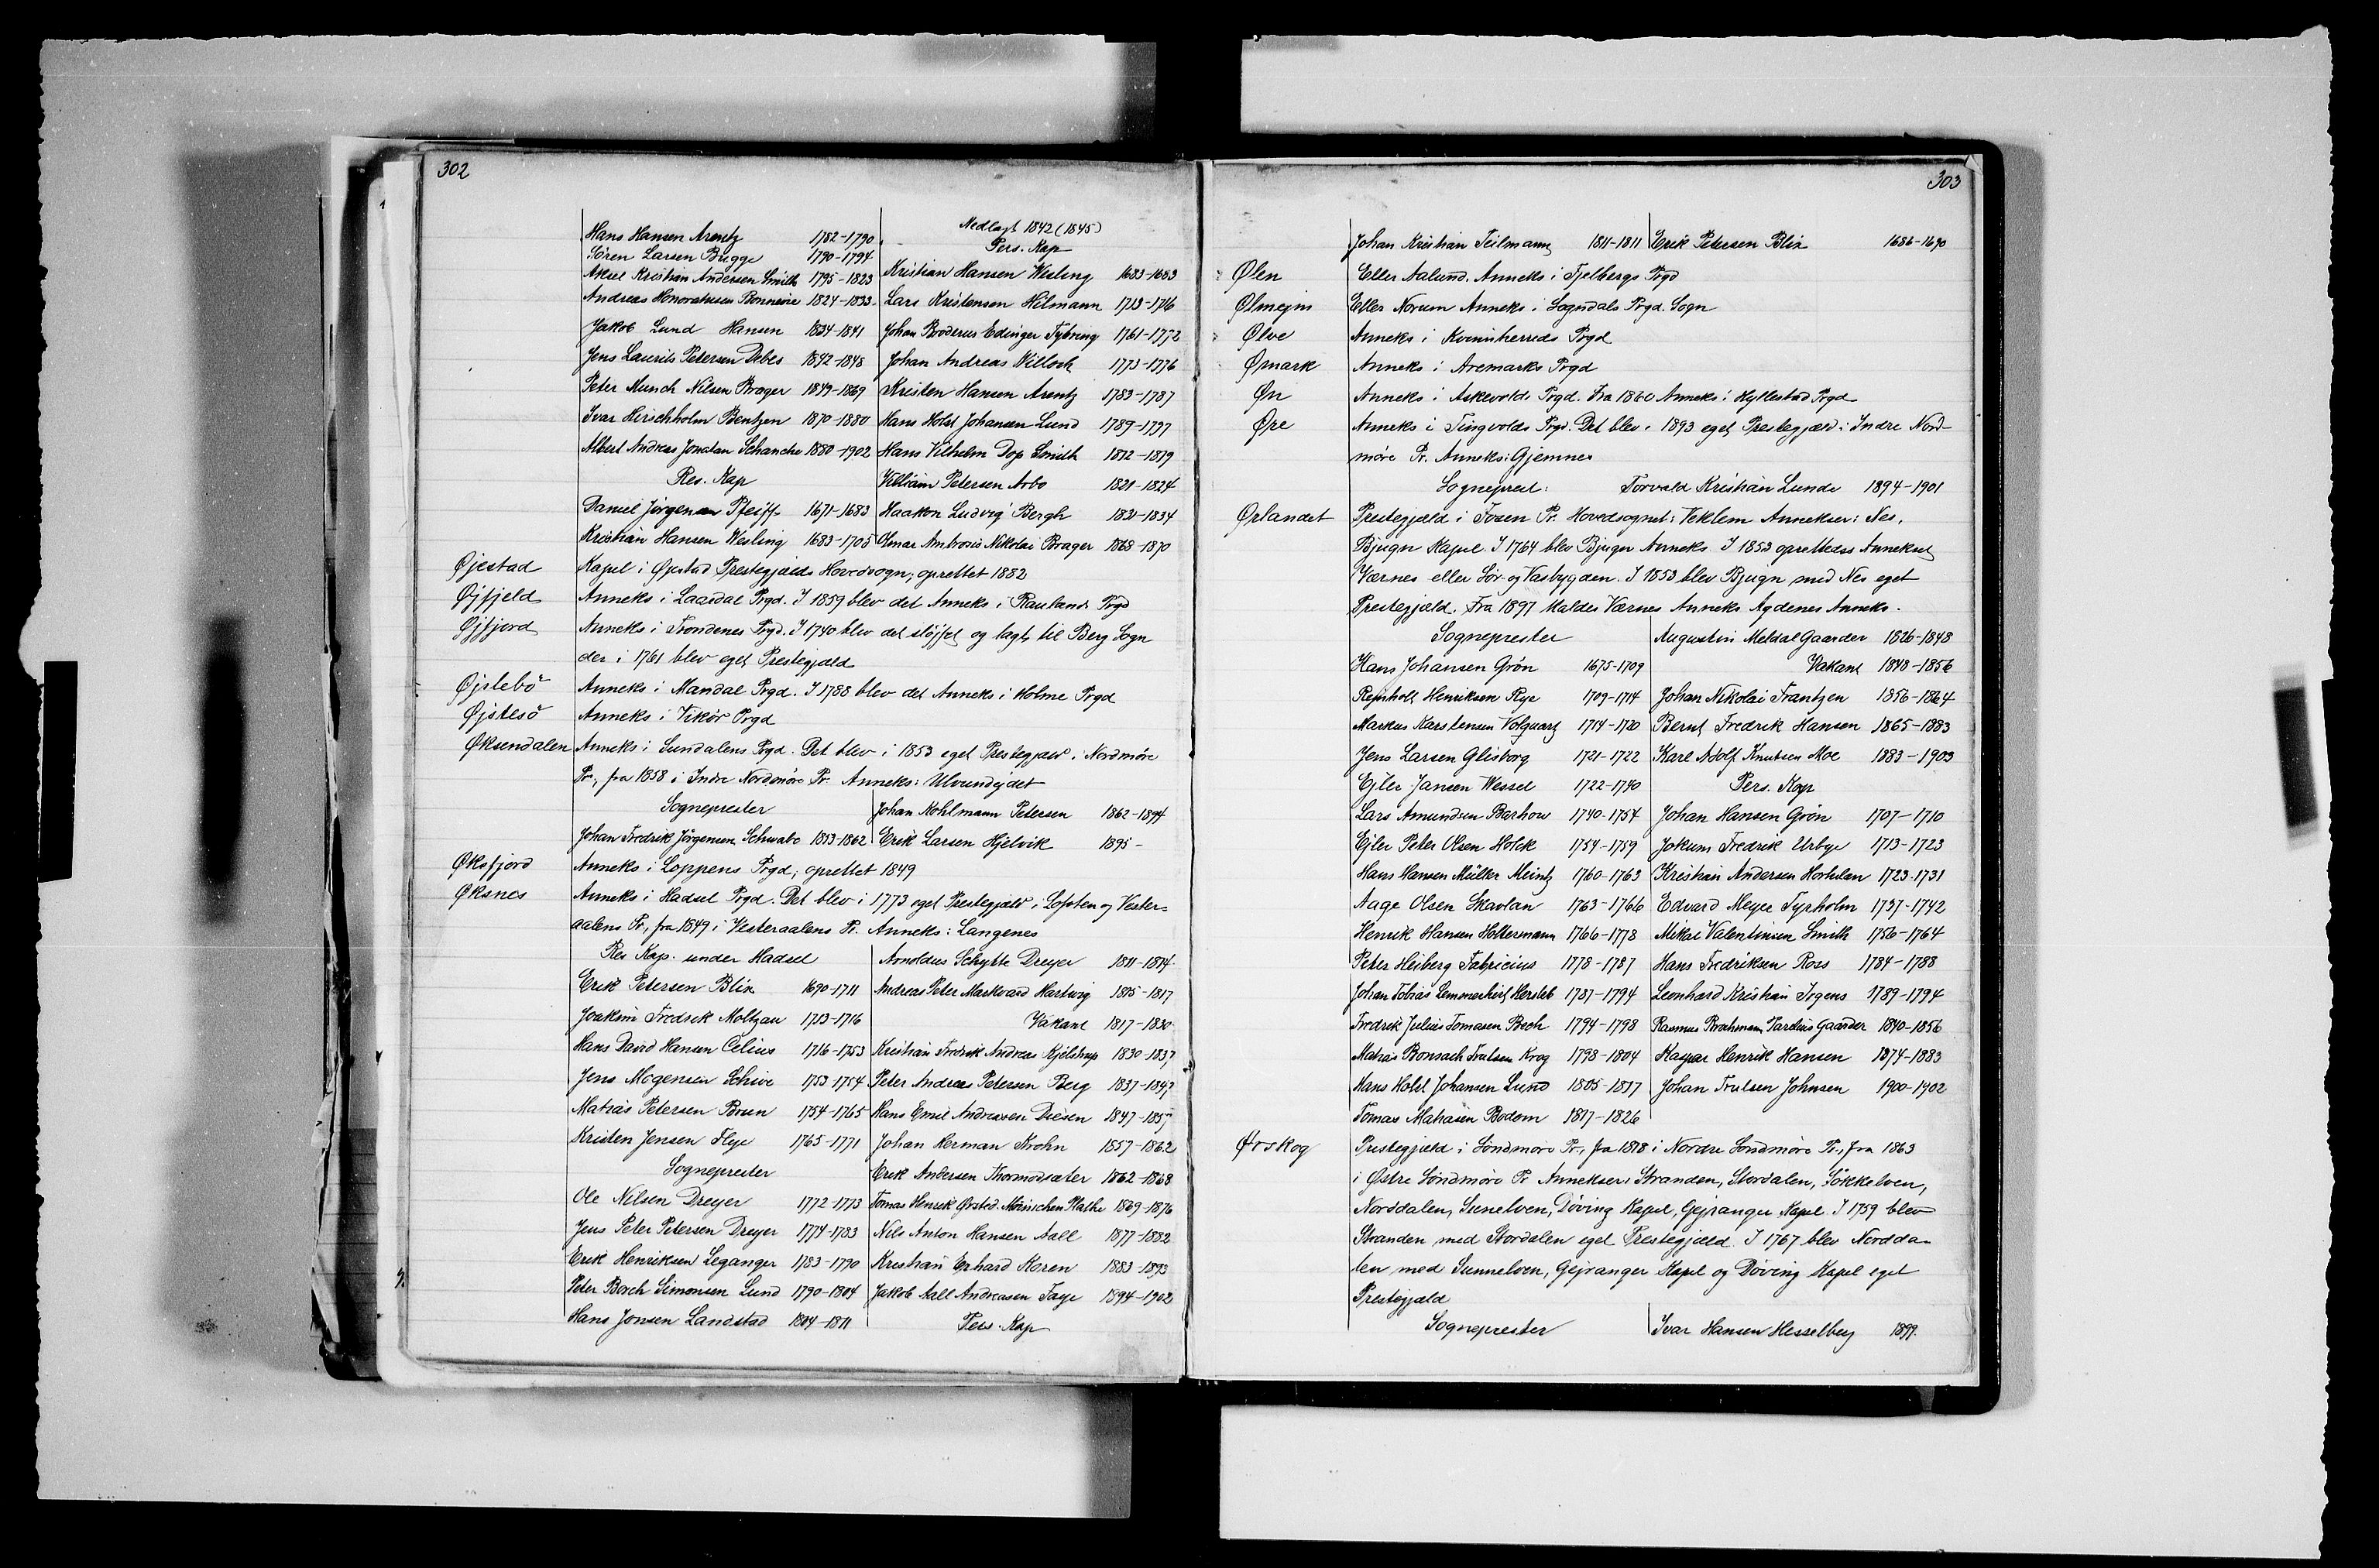 302
Hans Hansen Arentz 1782-1790
Sören Larsen Bugge 1790-1794
Aksel Kristian Andersen Smith 1795-1823
Andreas Honoratussen Bonnevie 1824-1833
Jakob Lund Hansen 1834-1841
Jens Laurits Petersen Debes 1842-1848
Peter Munch Nilsen Brager 1849-1869
Ivar Hirschholm Bentzen 1870-1880
Albert Andreas Jonatan Schanche 1880-1902
Res. Kap
Daniel Jörgensen Pfeiff 1671-1683
Kristian Hansen Wesling 1683-1705
Nedlagt 1842 (1845)
Pers. Kap
Kristian Hansen Wesling 1683-1683
Lars Kristensen Hilmann 1713-1716
Johan Broderus Edinger Tybring 1761-1772
Johan Andreas Willoch 1773-1776
Kristen Hansen Arentz 1783-1787
Hans Holst Johansen Lund 1789-1797
Hans Vilhelm Dop Smith 1812-1819
Villiam Petersen Arbo 1821-1824
Haakon Ludvig Bergh 1831-1834
Olmar Ambrosius Nikolai Brager 1868-1870
Øjestad Kapel i Øjestad Prestegjælds Hovedsogn, oprettet 1882
Øjfjeld Anneks i Laardal Prgd. I 1859 blev det Anneks i Raulands Prgd
Øjfjord Anneks i Trondenes Prgd. I 1740 blev det sløjfet og lagt til Berg Sogn
der i 1761 blev eget Prestegjæld
Øjslebö Anneks i Mandal Prgd. I 1788 blev det Anneks i Holme Prgd
Øjstesö Anneks i Vikör Prgd
Øksendalen Anneks i Sundalens Prgd. Det blev i 1853 eget Prestegjæld i Nordmöre
Pr., fra 1858 i Indre Nordmöre Pr. Anneks: Ulvundejdet
Sogneprester
Johan Fredrik Jörgensen Schwabe 1853-1862
Johan Kohlmann Petersen 1862-1894
Erik Larsen Hjelvik 1895-
Øksfjord Anneks i Loppens Prgd, oprettet 1849
Øksnes Anneks i Hadsel Prgd. Det blev i 1773 eget Prestegjæld i Lofoten og Vester-
aalens Pr., fra 1849 i Vesteraalens Pr. Anneks: Langenes
Res Kap. under Hadsel
Erik Petersen Blix 1690-1711
Joakim Fredrik Moltzau 1713-1716
Hans David Hansen Celius 1716-1753
Jens Mogensen Schive 1753-1754
Matias Petersen Brun 1754-1765
Kristen Jensen Flye 1765-1771
Sogneprester
Ole Nilsen Dreyer 1772-1773
Jens Peter Petersen Dreyer 1774-1783
Erik Henriksen Leganger 1783-1790
Peter Borch Simonsen Lund 1790-1804
Hans Jonsen Landstad 1804-1811
Arnoldus Schytte Dreyer 1811-1814
Andreas Peter Markvard Hartvig 1815-1817
Vakant 1817-1830
Kristian Fredrik Andreas Kjelstrup 1830-1837
Peter Andreas Petersen Berg 1837-1847
Hans Emil Andreasen Diesen 1847-1857
Johan Herman Krohn 1857-1862
Erik Andersen Thormodsæter 1862-1868
Tomas Henrik Ørsted Mörischen Plathe 1869-1876
Nils Anton Hansen Aall 1877-1882
Kristian Erhard Koren 1883-1893
Jakob Aall Andreasen Faye 1894-1902
Pers. Kap
303
Johan Kristian Teilmann 1811-1811 Erik Petersen Blix 1686-1690
Ølen Eller Aalund. Anneks i Fjelbergs Prgd
Ølmejm Eller Norum Anneks i Sogndals Prgd. Sogn
Ølve Anneks i Kvinnherreds Prgd
Ømark Anneks i Aremarks Prgd
Øn Anneks i Askevolds Prgd. Fra 1860 Anneks i Hyllestad Prgd
Øre Anneks i Tingvolds Prgd. Det blev i 1893 eget Prestegjæld i Indre Nord-
möre Pr. Anneks: Gjemnes
Sogneprest: Torvald Kristian Lunde 1894-1901
Ørlandet Prestegjæld i Fosen Pr. Hovedsognet: Veklem Annekser: Nes,
Bjugn Kapel. I 1764 blev Bjugn Anneks. I 1853 oprettedes Annekset
Værnes eller Sör- og Vasbygden. I 1853 blev Bjugn med Nes eget
Prestegjæld. Fra 1897 kaldes Værnes Anneks Agdenes Anneks.
Sogneprester
Hans Johansen Grön 1675-1709
Rejnholt Henriksen Rye 1709-1714
Markus Karstensen Volquarz 1714-1720
Jens Larsen Glisborg 1721-1722
Ejler Jansen Wessel 1722-1740
Lars Amundsen Barhow 1740-1754
Ejler Peter Olsen Holck 1754-1759
Hans Hansen Müller Meintz 1760-1763
Aage Olsen Skavlan 1763-1766
Henrik Hansen Holtermann 1766-1778
Peter Heiberg Fabricius 1778-1787
Johan Tobias Lemmerhirt Hersleb 1787-1794
Fredrik Julius Tomasen Bech 1794-1798
Matias Bonsach Trulsen Krog 1798-1804
Hans Holst Johansen Lund 1805-1817
Tomas Matiasen Bodom 1817-1826
Augustin Meldal Gaarder 1826-1848
Vakant 1848-1856
Johan Nikolai Frantzen 1856-1864
Bernt Fredrik Hansen 1865-1883
Karl Adolf Knutsen Moe 1883-1903
Pers. Kap
Johan Hansen Grön 1707-1710
Jokum Fredrik Urbye 1713-1723
Kristian Andersen Hortulan 1723-1731
Edvard Meyer Tyrholm 1737-1742
Mikal Valentinsen Smith 1756-1764
Hans Fredriksen Ross 1784-1788
Leonhard Kristian Irgens 1789-1794
Rasmus Brochmann Parelius Gaarder 1840-1856
Kaspar Henrik Hansen 1874-1883
Johan Trulsen Johnsen 1900-1902
Ørskog Prestegjæld i Söndmöre Pr., fra 1818 i Nordre Söndmöre Pr., fra 1863
i Østre Söndmöre Pr Annekser: Stranden, Stordalen, Sökkelven,
Norddalen, Sunelven, Döving Kapel, Gejranger Kapel. I 1759 blev
Stranden med Stordalen eget Prestegjæld. I 1767 blev Nordda-
len med Sunnelven, Gejranger Kapel og Döving Kapel eget
Prestegjæld
Sogneprester Ivar Hansen Hesselberg 1899.